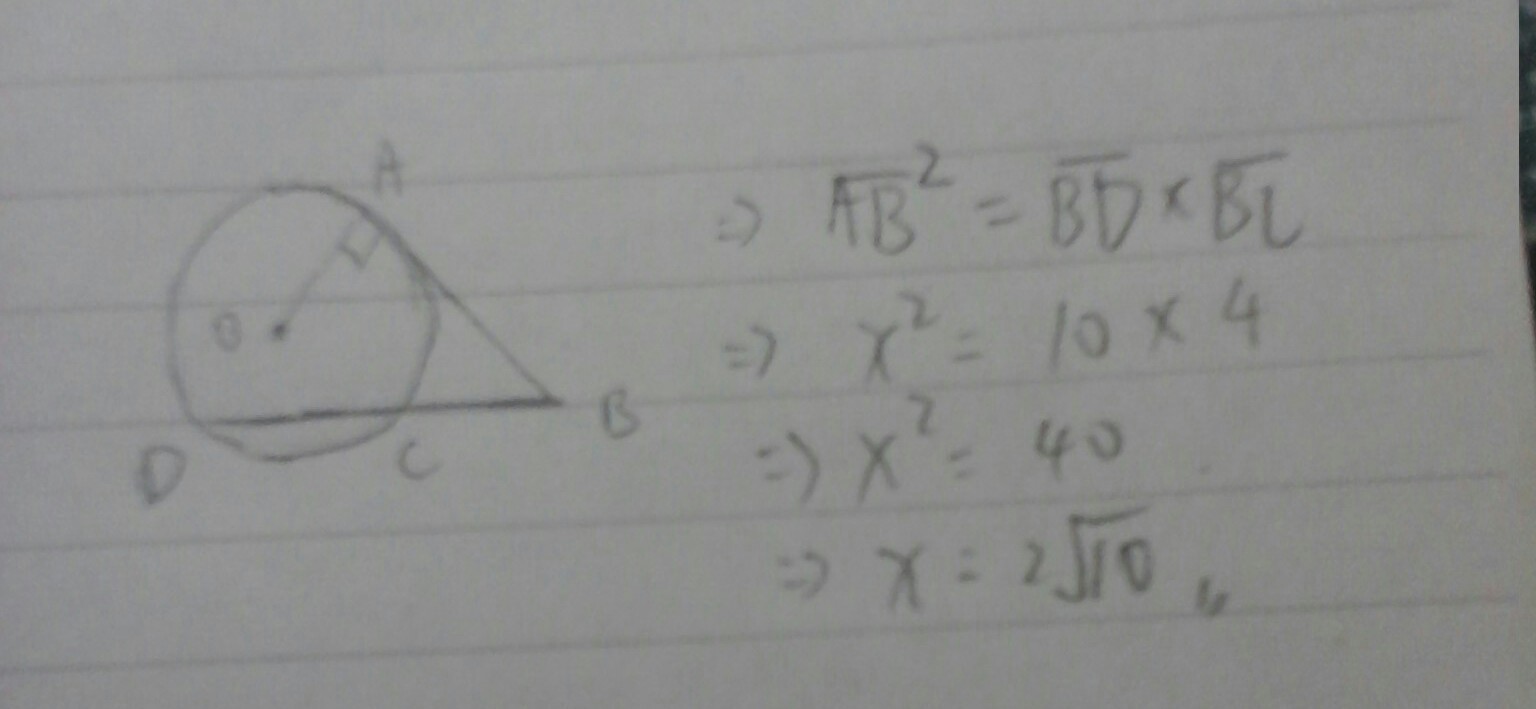 A
O
B
D
C
⇒ A̅B̅² = B̅D̅ × B̅C̅
⇒ x² = 10 × 4
⇒ x² = 40
⇒ x = 2√10 〃